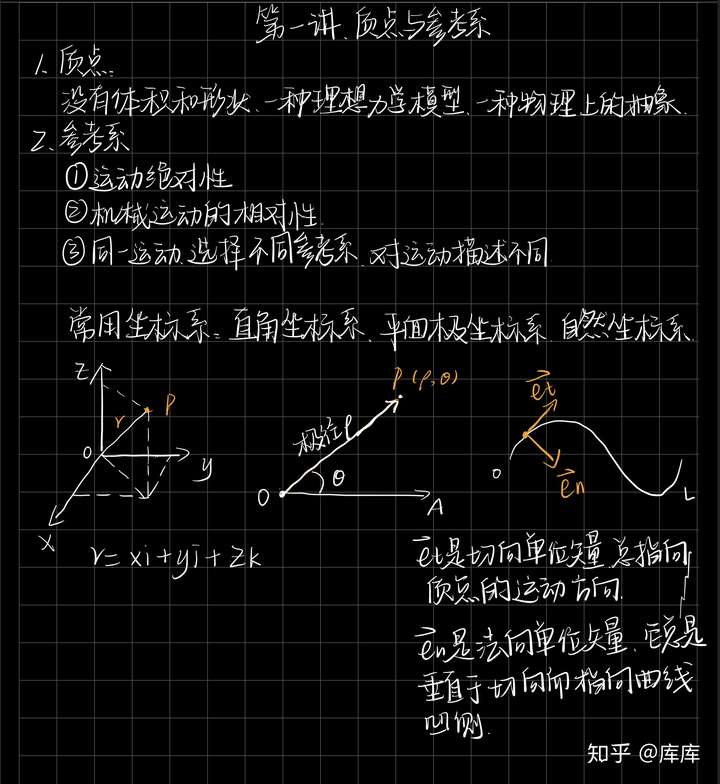 第一讲、质点与参考系
1、质点.
没有体积和形状、一种理想力学模型、一种物理上的抽象.
2、参考系
①运动绝对性
②机械运动的相对性.
③同一运动、选择不同参考系、对运动描述不同.
常用坐标系：直角坐标系、平面极坐标系、自然坐标系.
Z
r
P
O
y
X
r=xi+yj+zk
P(ρ,θ)
极径ρ
θ
O
A
et
en
O
L
et是切向单位矢量、总指向
质点的运动方向.
en是法向单位矢量、它总是
垂直于切向而指向曲线
凹侧.
知乎 @库库